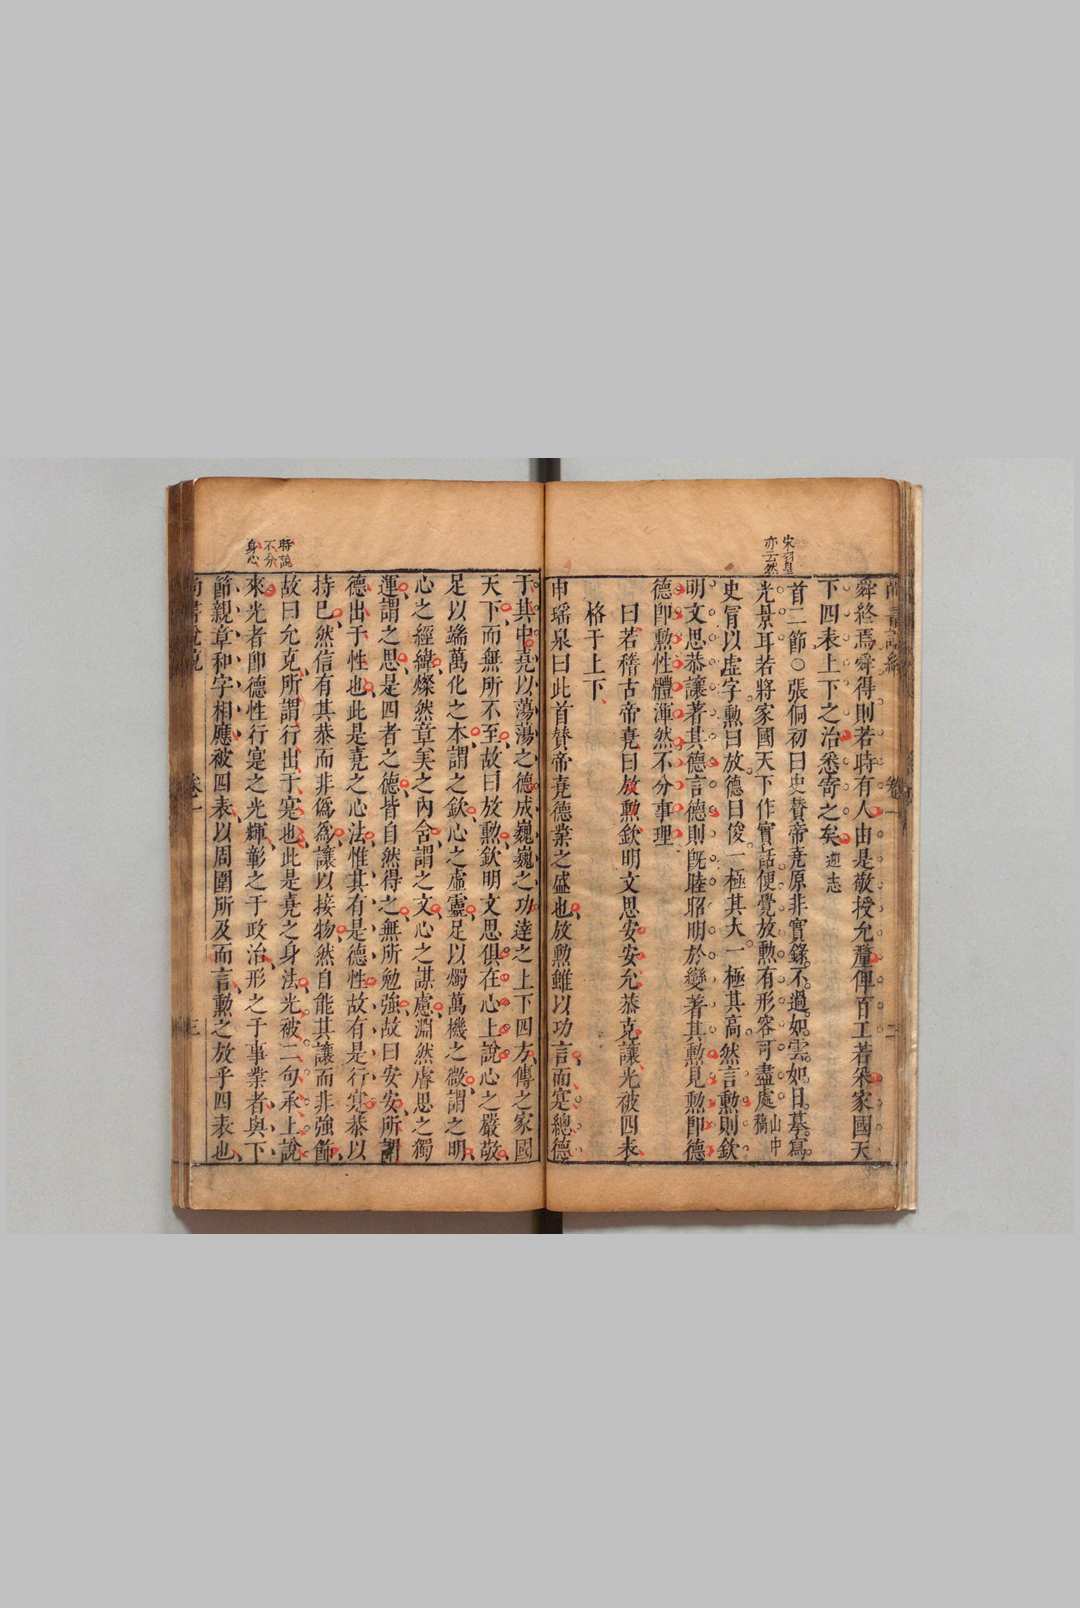 舜終焉舜得則若時有人由是敬授允釐俾百工若采家國天
下四表上下之治悉寄之矣 迎志
首二節○張侗初曰史贊帝堯原非實錄不過如雲如日摹寫
光景耳若將家國天下作實話便覺放勲有形容可盡處 山中
稿
史冐以虛字勲曰放德曰俊一極其大一極其高然言勲則欽
明文思恭讓著其德言德則既睦昭明於變著其勲見勲即德
德即勲性體渾然不分事理
曰若稽古帝堯曰放勲欽明文思安安允恭克讓光被四表
格于上下
申瑤泉曰此首贊帝堯德業之盛也放勲雖以功言而寔總德
亦云然
于其中堯以蕩蕩之德成巍巍之功達之上下四方傳之家國
天下而無所不至故曰放勲欽明文思俱在心上說心之嚴敬
足以端萬化之本謂之欽心之虛靈足以燭萬機之微謂之明
心之經緯燦然章美之內含謂之文心之謀慮淵然睿思之獨
運謂之思是四者之德皆自然得之無所勉強故曰安安所謂
德出于性也此是堯之心法惟其有是德性故有是行寔恭以
持已然信有其恭而非偽為讓以接物然自能其讓而非強飾
故曰允克所謂行出于寔也此是堯之身法光被二句承上說
來光者即德性行寔之光輝彰之于政治形之于事業者與下
節親章和字相應被四表以周圍所及而言勲之放乎四表也
時說
不分
身心
卷一
三